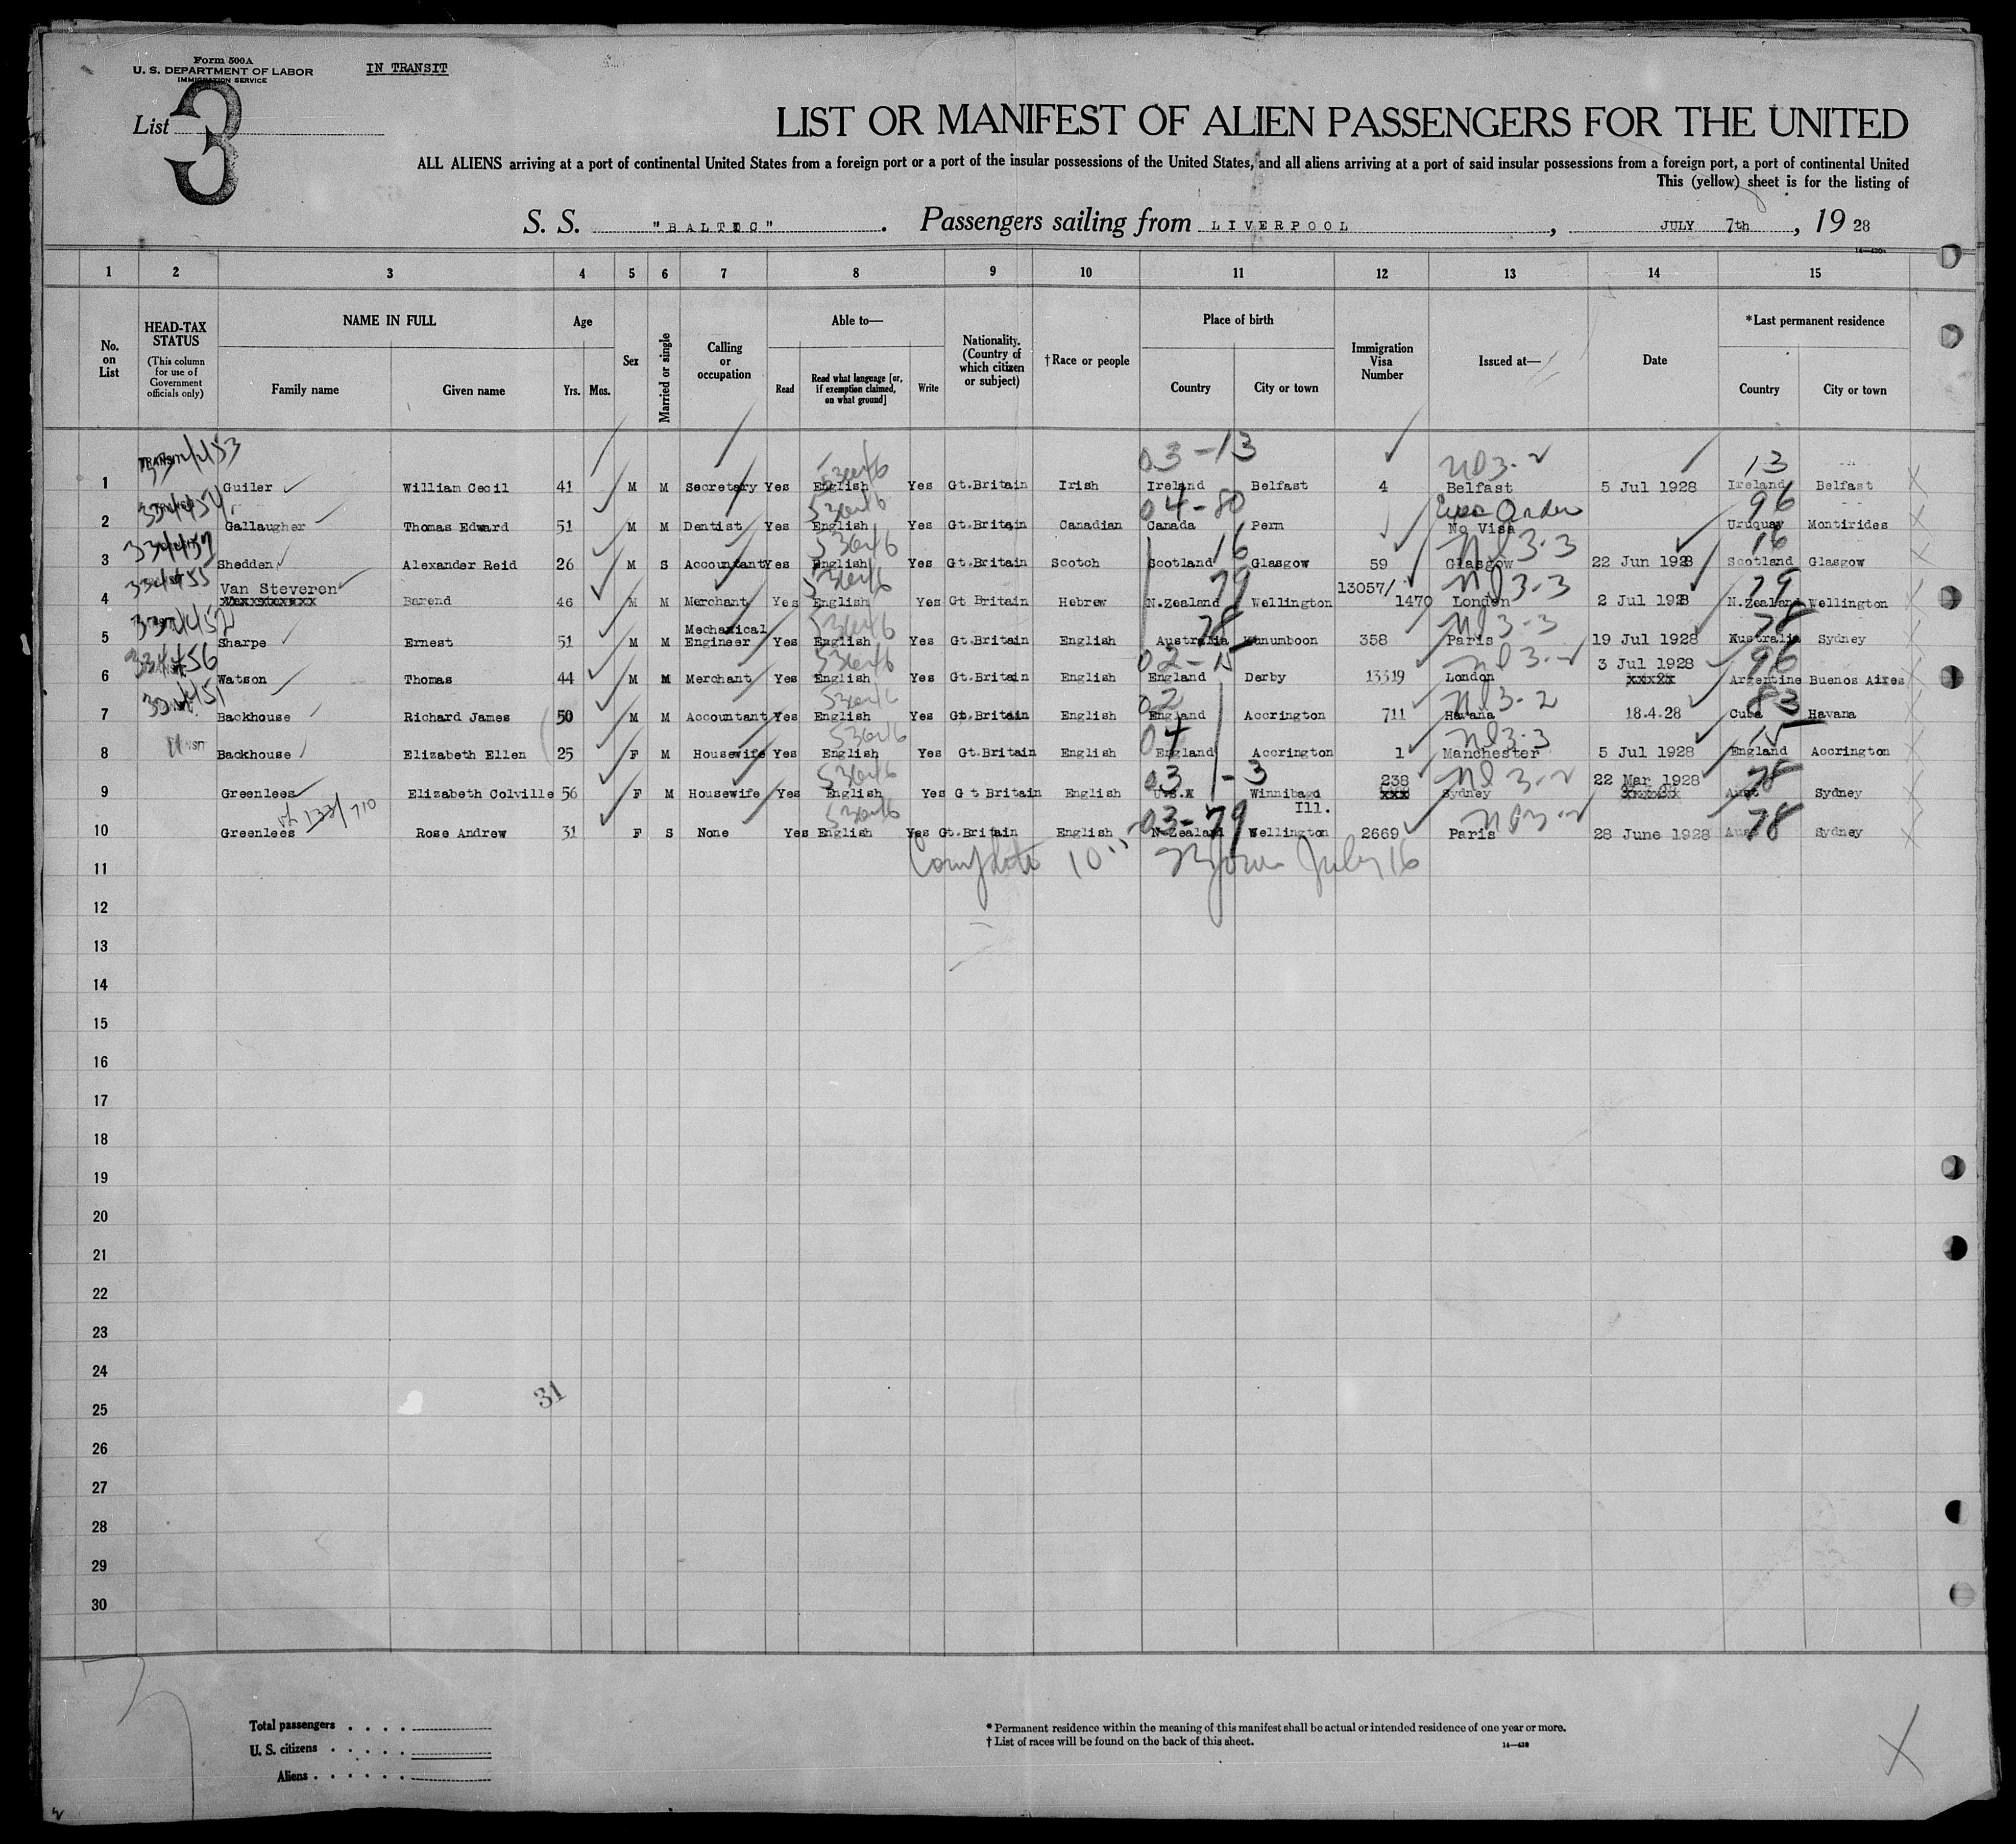 Form 500A
U. S. DEPARTMENT OF LABOR
IMMIGRATION SERVICE
IN TRANSIT
List 3
LIST OR MANIFEST OF ALIEN PASSENGERS FOR THE UNITED
ALL ALIENS arriving at a port of continental United States from a foreign port or a port of the insular possessions of the United States, and all aliens arriving at a port of said insular possessions from a foreign port, a port of continental United
This (yellow) sheet is for the listing of
S. S. "BALTIC". Passengers sailing from LIVERPOOL, JULY 7th, 19 28
1 2 3 4 5 6 7 8 9 10 11 12 13 14 15
No. on List
HEAD-TAX STATUS (This column for use of Government officials only)
NAME IN FULL Family name Given name
Age Yrs. Mos.
Sex
Married or single
Calling or occupation
Able to— Read Read what language [or, if exemption claimed, on what ground] Write
Nationality. (Country of which citizen or subject)
†Race or people
Place of birth Country City or town
Immigration Visa Number
Issued at—
Date
*Last permanent residence Country City or town
03-13 13
1 Guiler William Cecil 41 M M Secretary Yes English Yes Gt.Britain Irish Ireland Belfast 4 Belfast 5 Jul 1928 Ireland Belfast
04-80 96
2 Gallaugher Thomas Edward 51 M M Dentist Yes English Yes Gt.Britain Canadian Canada Perm No Visa Uruquay Montirides
16 16
3 Shedden Alexander Reid 26 M S Accountant Yes English Yes Gt.Britain Scotch Scotland Glasgow 59 Glasgow 22 Jun 1928 Scotland Glasgow
79 79
4 Van Steveren Barend 46 M M Merchant Yes English Yes Gt Britain Hebrew N.Zealand Wellington 13057/1470 London 2 Jul 1928 N.Zealand Wellington
78 78
5 Sharpe Ernest 51 M M Mechanical Engineer Yes English Yes Gt.Britain English Australia Kunumboon 358 Paris 19 Jul 1928 Australia Sydney
02-15 96
6 Watson Thomas 44 M M Merchant Yes English Yes Gt.Britain English England Derby 13519 London 3 Jul 1928 Argentine Buenos Aires
02 83
7 Backhouse Richard James 50 M M Accountant Yes English Yes Gt.Britain English England Accrington 711 Havana 18.4.28 Cuba Havana
04 15
8 Backhouse Elizabeth Ellen 25 F M Housewife Yes English Yes Gt.Britain English England Accrington 1 Manchester 5 Jul 1928 England Accrington
03-3 78
9 Greenlees Elizabeth Colville 56 F M Housewife Yes English Yes Gt Britain English U.S.A Winnibago Ill. 238 Sydney 22 Mar 1928 Aust Sydney
03-79 78
10 Greenlees Rose Andrew 31 F S None Yes English Yes Gt.Britain English N.Zealand Wellington 2669 Paris 28 June 1928 Aust Sydney
11 July 16
12
13
14
15
16
17
18
19
20
21
22
23
24
31
25
26
27
28
29
30
Total passengers
U. S. citizens
Aliens
* Permanent residence within the meaning of this manifest shall be actual or intended residence of one year or more.
† List of races will be found on the back of this sheet.
14—430